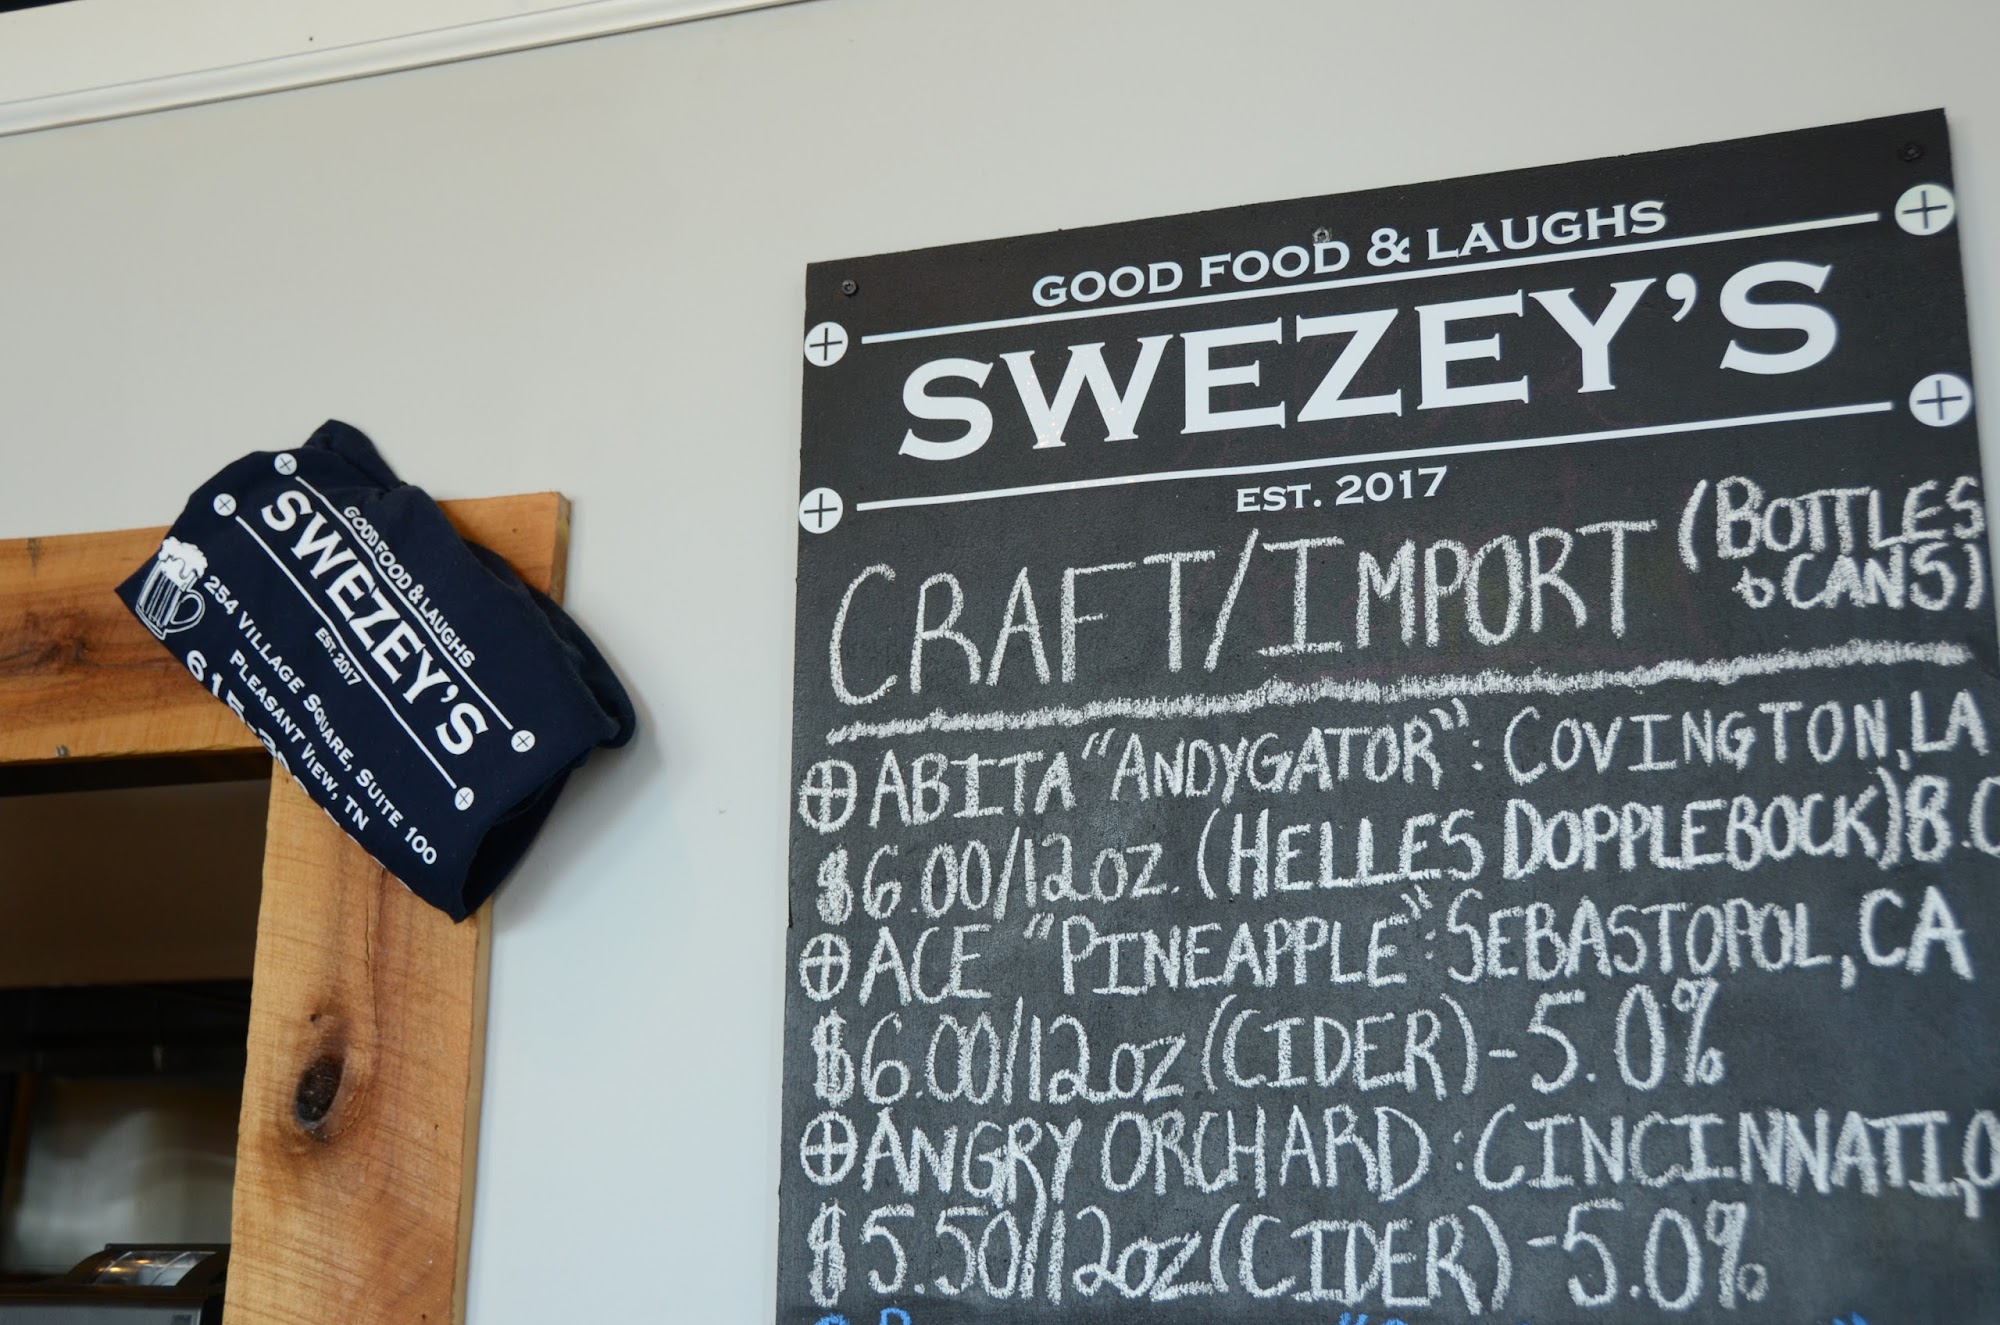 GOOD FOOD & LAUGHS
SWEZEY'S
EST. 2017
254 VILLAGE SQUARE, SUITE 100
PLEASANT VIEW, TN
GOOD FOOD & LAUGHS
SWEZEY'S
EST. 2017
CRAFT/IMPORT (BOTTLES
& CANS)
ABITA "ANDYGATOR": COVINGTON, LA
$6.00/12oz. (HELLES DOPPLEBOCK) 8.0
ACE "PINEAPPLE": SEBASTOPOL, CA
$6.00/12oz (CIDER) - 5.0%
ANGRY ORCHARD: CINCINNATI, O
$5.50/12oz (CIDER) - 5.0%